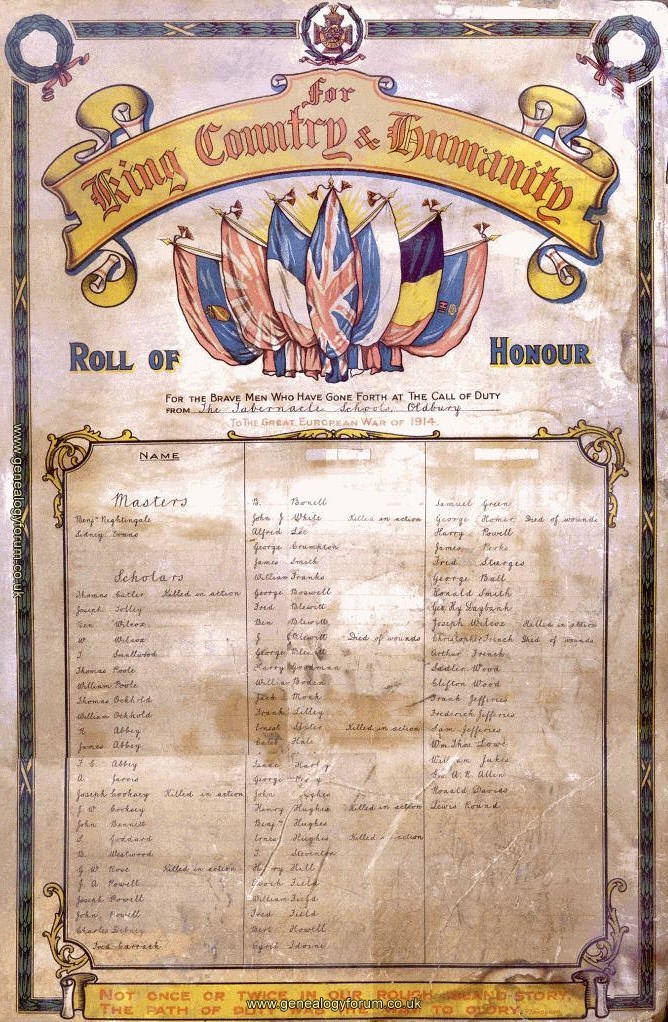 For
King Country & Humanity
ROLL OF HONOUR
FOR THE BRAVE MEN WHO HAVE GONE FORTH AT THE CALL OF DUTY
FROM The Tabernacle Schools, Oldbury
TO THE GREAT EUROPEAN WAR OF 1914.
NAME
Masters
Benjn Nightingale
Sidney Evans
Scholars
Thomas Cutler Killed in action
Joseph Tolley
Ben Wilcox
W Wilcox
T. Smallwood
Thomas Poole
William Poole
Thomas Ockhold
William Ockhold
Abbey
James Abbey
F. E. Abbey
A Jarvis
Joseph Cooksey Killed in action
J. W. Cooksey
John Bennett
Goddard
B. Westwood
G W Rose Killed in action
J. A. Powell
Joseph Powell
John Powell
Charles
Fred
B. Bonell
John J White Killed in action
Alfred Lee
George Crumpton
James Smith
William Franks
George Boswell
Fred Blewitt
Ben Blewitt
J Blewitt Died of wounds
George Blewitt
Harry Goodman
William Boden
Jack Monk
Frank Lilley
Ernest Killed in action
Hale
Isaac
George
John
Henry Hughes Killed in action
Benjn Hughes
Ernest Hughes Killed in action
T. Steventon
Harry Hill
Enoch Field
William Field
Fred Field
Bert Howell
Cyril
Samuel Green
George Homer Died of wounds
Harry Powell
James Perks
Fred Sturges
George Ball
Ronald Smith
Geo. Hy.
Joseph Wilcox Killed in action
Christopher French Died of wounds
Arthur French
Wood
Clifton Wood
Frank Jefferies
Frederick Jefferies
Sam Jefferies
Wm Thos Lowe
William Jukes
Geo. W. R. Allen
Ronald Davies
Lewis Round
NOT ONCE OR TWICE IN OUR ROUGH ISLAND-STORY,
THE PATH OF TO GLORY
www.genealogyforum.co.uk
www.genealogyforum.co.uk